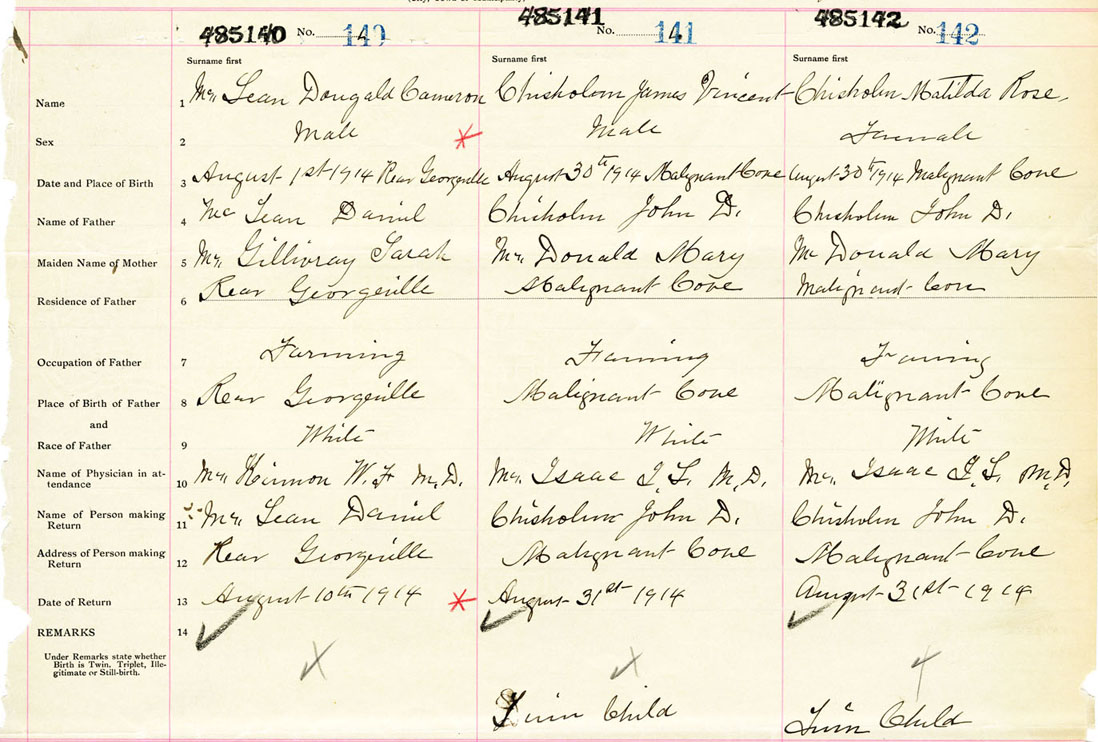 485140 No. 140 485141 No. 141 485142 No. 142
Surname first Surname first Surname first
Name 1 Mc Lean Dougald Cameron Chisholm James Vincent Chisholm Matilda Rose.
Sex 2 Male Male Female
Date and Place of Birth 3 August 1st 1914 Rear Georgeville August 30th 1914 Malignant Cove August 30th 1914 Malignant Cove
Name of Father 4 Mc Lean Daniel Chisholm John D. Chisholm John D.
Maiden Name of Mother 5 Mc Gillivray Sarah Mc Donald Mary Mc Donald Mary
Residence of Father 6 Rear Georgeville Malignant Cove Malignant Cove
Occupation of Father 7 Farming Farming Farming
Place of Birth of Father 8 Rear Georgeville Malignant Cove Malignant Cove
and
Race of Father 9 White White White
Name of Physician in at-
tendance 10 Mc Kinnon W. F M.D. Mc Isaac M.D. Mc Isaac M.D.
Name of Person making
Return 11 Mc Lean Daniel Chisholm John D. Chisholm John D.
Address of Person making
Return 12 Rear Georgeville Malignant Cove Malignant Cove
Date of Return 13 August 10th 1914 August 31st 1914 August 31st 1914
REMARKS 14
Under Remarks state whether
Birth is Twin. Triplet, Ille-
gitimate or Still-birth.
Twin Child Twin Child